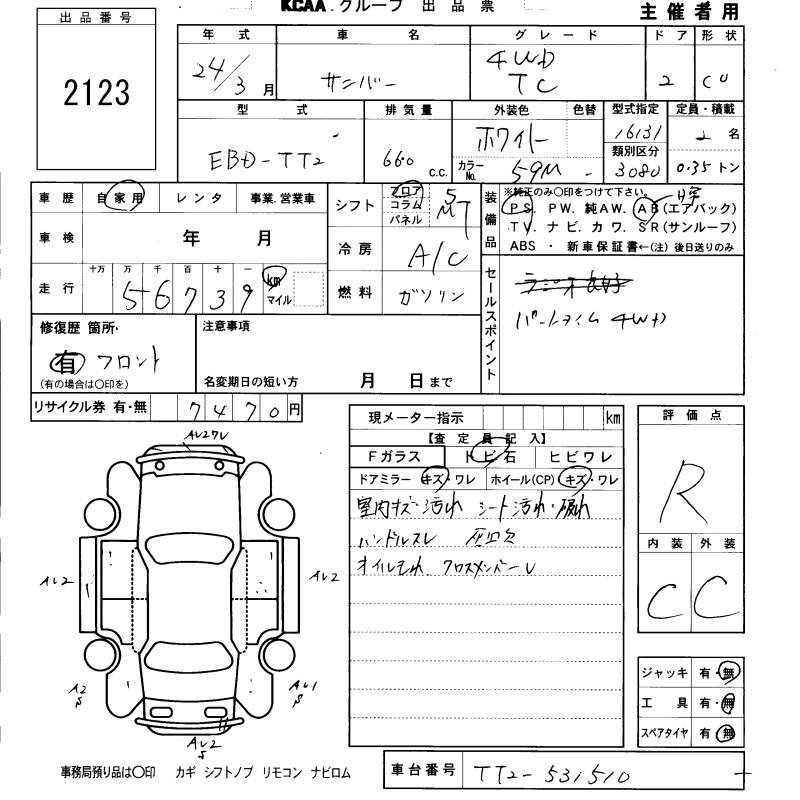 KCAA.グループ 出品票
主催者用
出品番号
2123
年式 車名 グレード ドア 形状
24/3月 サンバー 4WD TC 2 CU
型式 排気量 外装色 色替 型式指定 定員・積載
EBD-TT2 660 C.C. ホワイト 16131 2名
カラーNo. 59M 類別区分 3080 0.35トン
車歴 自家用 レンタ 事業.営業車
車検 年 月
走行 十万 万 千 百 十 一 km マイル
56739
シフト フロア コラム パネル 5 MT
冷房 A/C
燃料 ガソリン
装備品
※純正のみ○印をつけて下さい。
PS. PW. 純AW. AB(エアバック)
TV. ナビ. カワ. SR(サンルーフ)
ABS ・ 新車保証書←(注) 後日送りのみ
セールスポイント
パートタイム 4WD
修復歴 箇所.
有 フロント
(有の場合は○印を)
注意事項
名変期日の短い方 月 日まで
リサイクル券 有・無 7470円
現メーター指示 km
【査定員記入】
Fガラス トビ石 ヒビワレ
ドアミラー キズ・ワレ ホイール(CP) キズ・ワレ
室内キズ・汚れ シート汚れ・破れ
ハンドルスレ 灰皿欠
オイルモレ クロスメンバーU
評価点
R
内装 外装
C C
ジャッキ 有・無
工具 有・無
スペアタイヤ 有・無
AU2
AU2
A2
S
AU1
S
AU2
S
事務局預り品は○印 カギ シフトノブ リモコン ナビロム
車台番号 TT2-531510